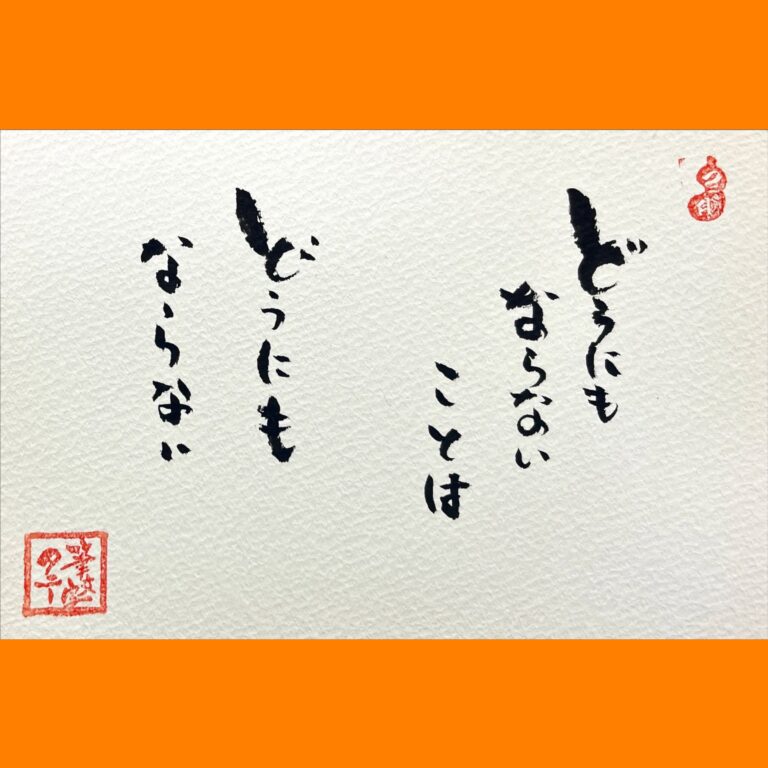 どうにも
ならない
ことは
どうにも
ならない